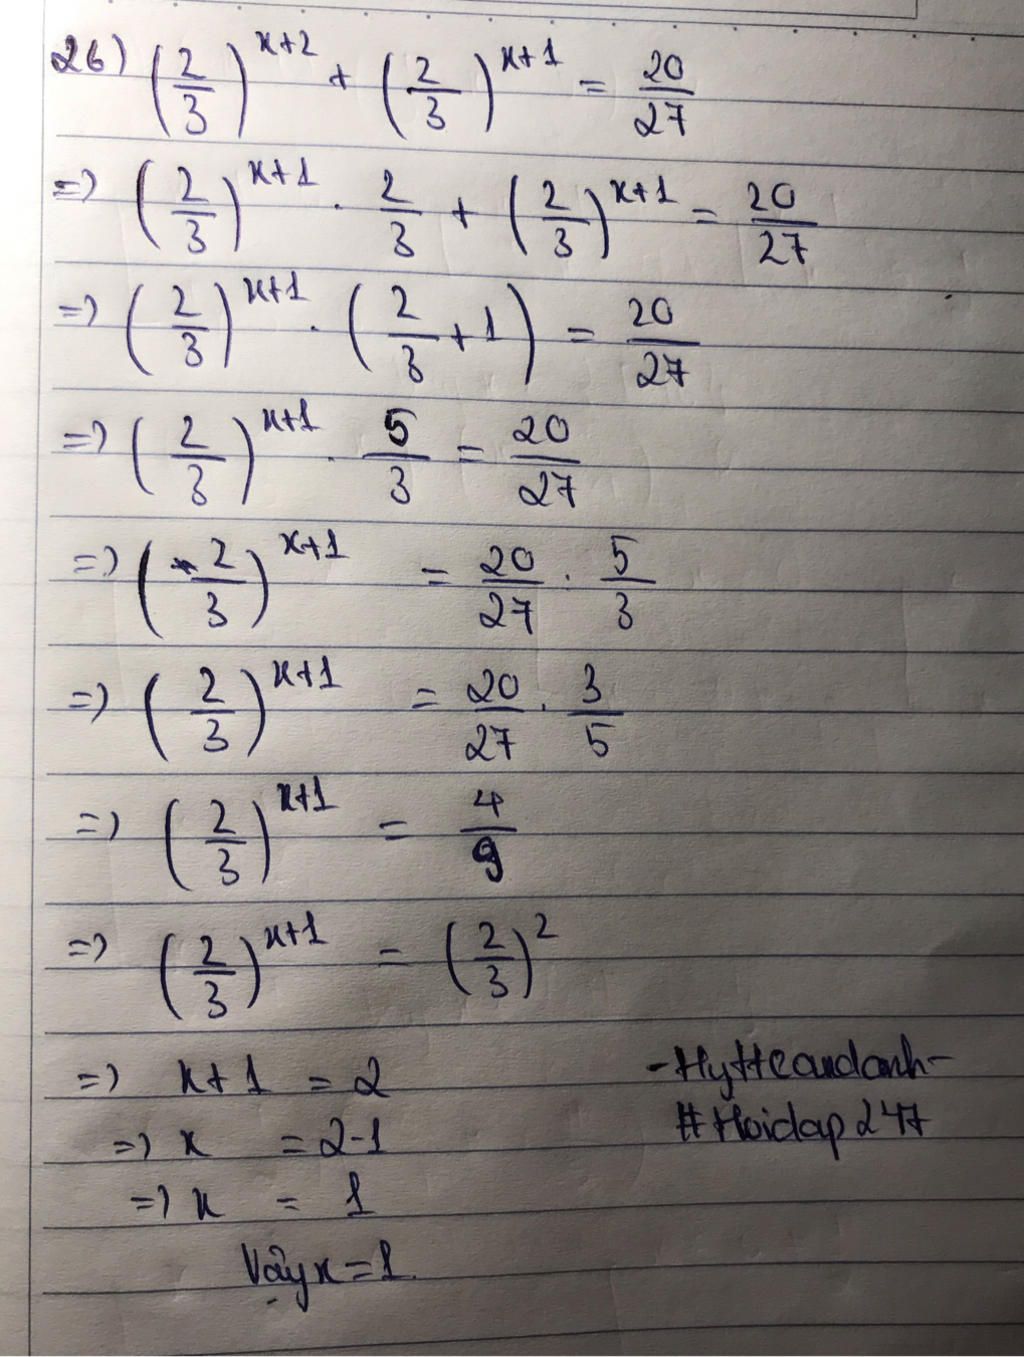 26) (2/3)^(x+2) + (2/3)^(x+1) = 20/27
=> (2/3)^(x+1) . 2/3 + (2/3)^(x+1) = 20/27
=> (2/3)^(x+1) . (2/3 + 1) = 20/27
=> (2/3)^(x+1) . 5/3 = 20/27
=> (2/3)^(x+1) = 20/27 . 5/3
=> (2/3)^(x+1) = 20/27 . 3/5
=> (2/3)^(x+1) = 4/9
=> (2/3)^(x+1) = (2/3)^2
=> x+1 = 2
=> x = 2-1
=> x = 1
Vậy x = 1.
#Hoidap247